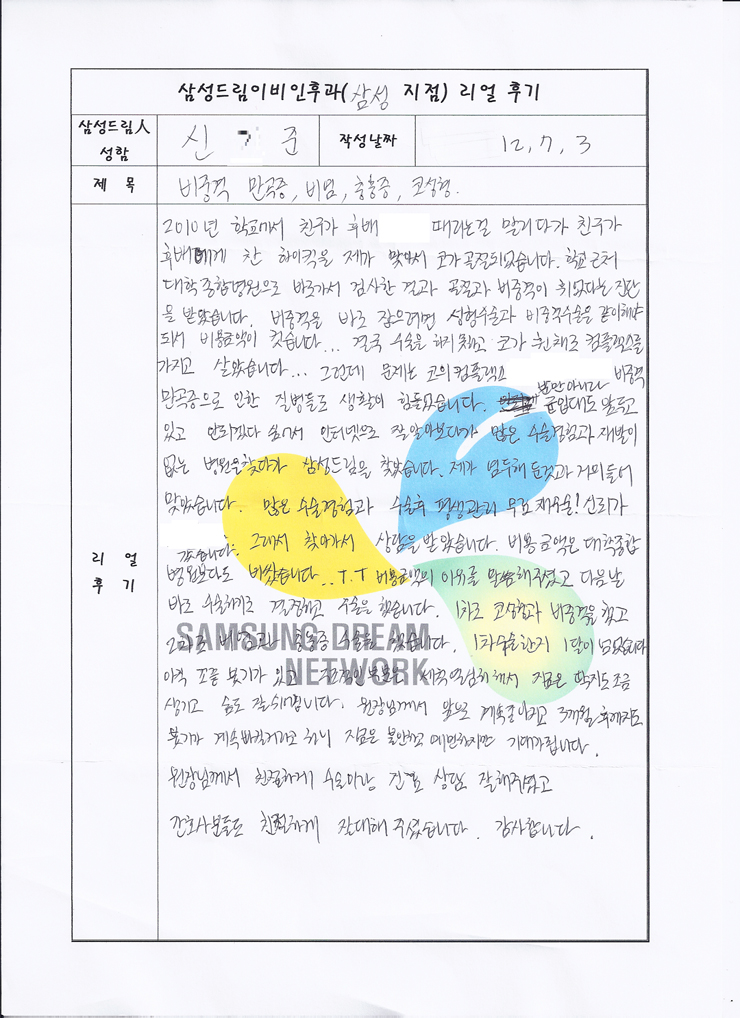 삼성드림이비인후과(삼성 지점) 리얼 후기
삼성드림人 성함
신 준
작성날짜
12, 7, 3
제 목
비중격 만곡증, 비염, 축농증, 코성형.
리 얼
후 기
2010년 학교에서 친구가 후배 때리는걸 말리다가 친구가
후배에게 찬 하이킥을 제가 맞아서 코가 골절되었습니다. 학교근처
대학종합병원으로 바로가서 검사한 결과 골절과 비중격이 휘었다는 진단
을 받았습니다. 비중격을 바로 잡으려면 성형수술과 비중격수술을 같이해야
되서 비용금액이 컷습니다... 결국 수술을 하지못하고 코가 휜채로 컴플렉스를
가지고 살았습니다... 그런데 문제는 코의컴플렉스 뿐만아니라 비중격
만곡증으로 인한 질병들로 생활이 힘들었습니다. 군입대도 앞두고
있고 안되겠다 싶어서 인터넷으로 잘알아보다가 많은 수술경험과 재발이
없는 병원을찾다가 삼성드림을 찾았습니다. 제가 염두해둔것과 거의들어
맞았습니다. 많은 수술경험과 수술후 평생관리 무료재수술! 신뢰가
갔습니다. 그래서 찾아가서 상담을 받았습니다. 비용금액은 대학종합
병원보다도 비쌌습니다...T.T 비용금액의 이유를 말씀해주셨고 다음날
바로 수술하기로 결정하고 수술을 했습니다. 1차로 코성형과 비중격을 했고
2차로 비염과 축농증 수술을 했습니다. 1차수술한지 1달이 넘었습니다
아직 조끔 붓기가 있고 세척열심히해서 지금은 딱지도조금
생기고 숨도 잘쉬어집니다. 원장님께서 앞으로 계속좋아지고 3개월후에까지도
붓기가 계속빠질거라고 하니 지금은 불안하고 예민하지만 기대가됩니다.
원장님께서 친절하게 수술이랑 진료 상담 잘해주셨고
간호사분들도 친절하게 잘대해 주셨습니다. 감사합니다.
SAMSUNG DREAM
NETWORK